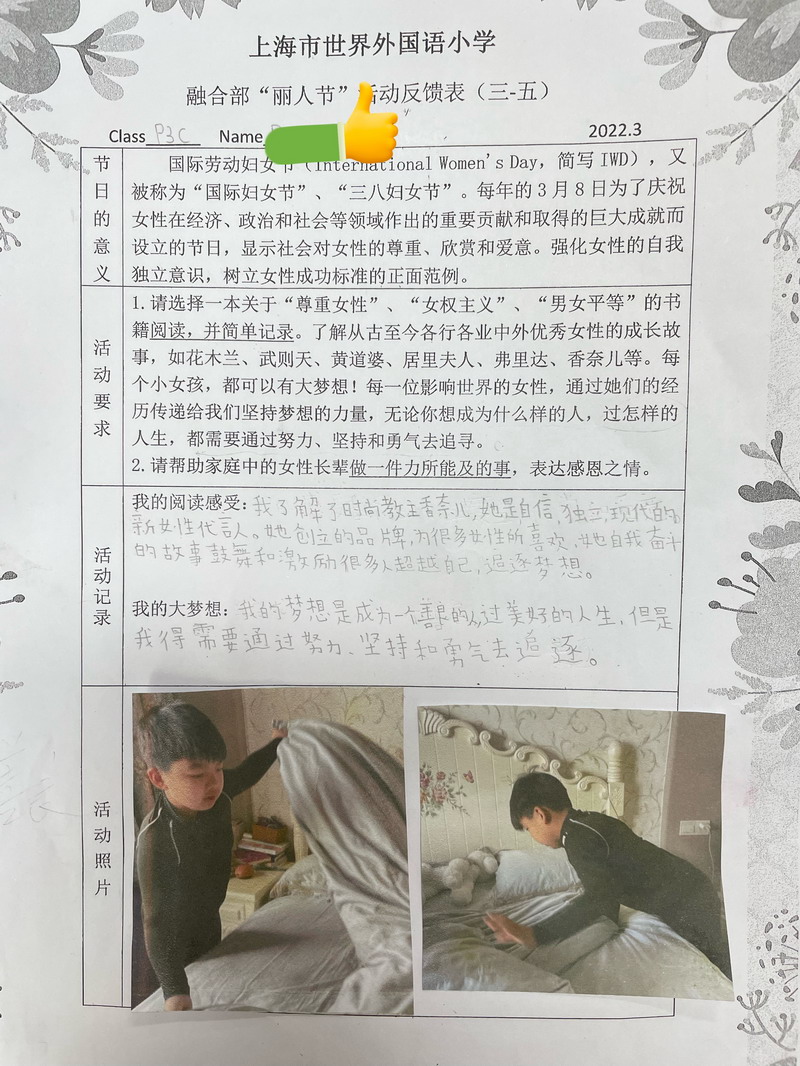 上海市世界外国语小学
融合部“丽人节”活动反馈表（三-五）
Class P3C Name
2022.3
节日的意义
国际劳动妇女节（International Women's Day，简写 IWD），又
被称为“国际妇女节”、“三八妇女节”。每年的 3 月 8 日为了庆祝
女性在经济、政治和社会等领域作出的重要贡献和取得的巨大成就而
设立的节日，显示社会对女性的尊重、欣赏和爱意。强化女性的自我
独立意识，树立女性成功标准的正面范例。
活动要求
1. 请选择一本关于“尊重女性”、“女权主义”、“男女平等”的书
籍阅读，并简单记录。了解从古至今各行各业中外优秀女性的成长故
事，如花木兰、武则天、黄道婆、居里夫人、弗里达、香奈儿等。每
个小女孩，都可以有大梦想！每一位影响世界的女性，通过她们的经
历传递给我们坚持梦想的力量，无论你想成为什么样的人，过怎样的
人生，都需要通过努力、坚持和勇气去追寻。
2. 请帮助家庭中的女性长辈做一件力所能及的事，表达感恩之情。
活动记录
我的阅读感受：我了解了时尚教主香奈儿，她是自信，独立，现代的
新女性代言人。她创立的品牌，为很多女性所喜欢，她自我奋斗
的故事鼓舞和激励很多人超越自己，追逐梦想。
我的大梦想：我的梦想是成为一个善良的人，过美好的人生，但是
我得需要通过努力、坚持和勇气去追逐。
活动照片